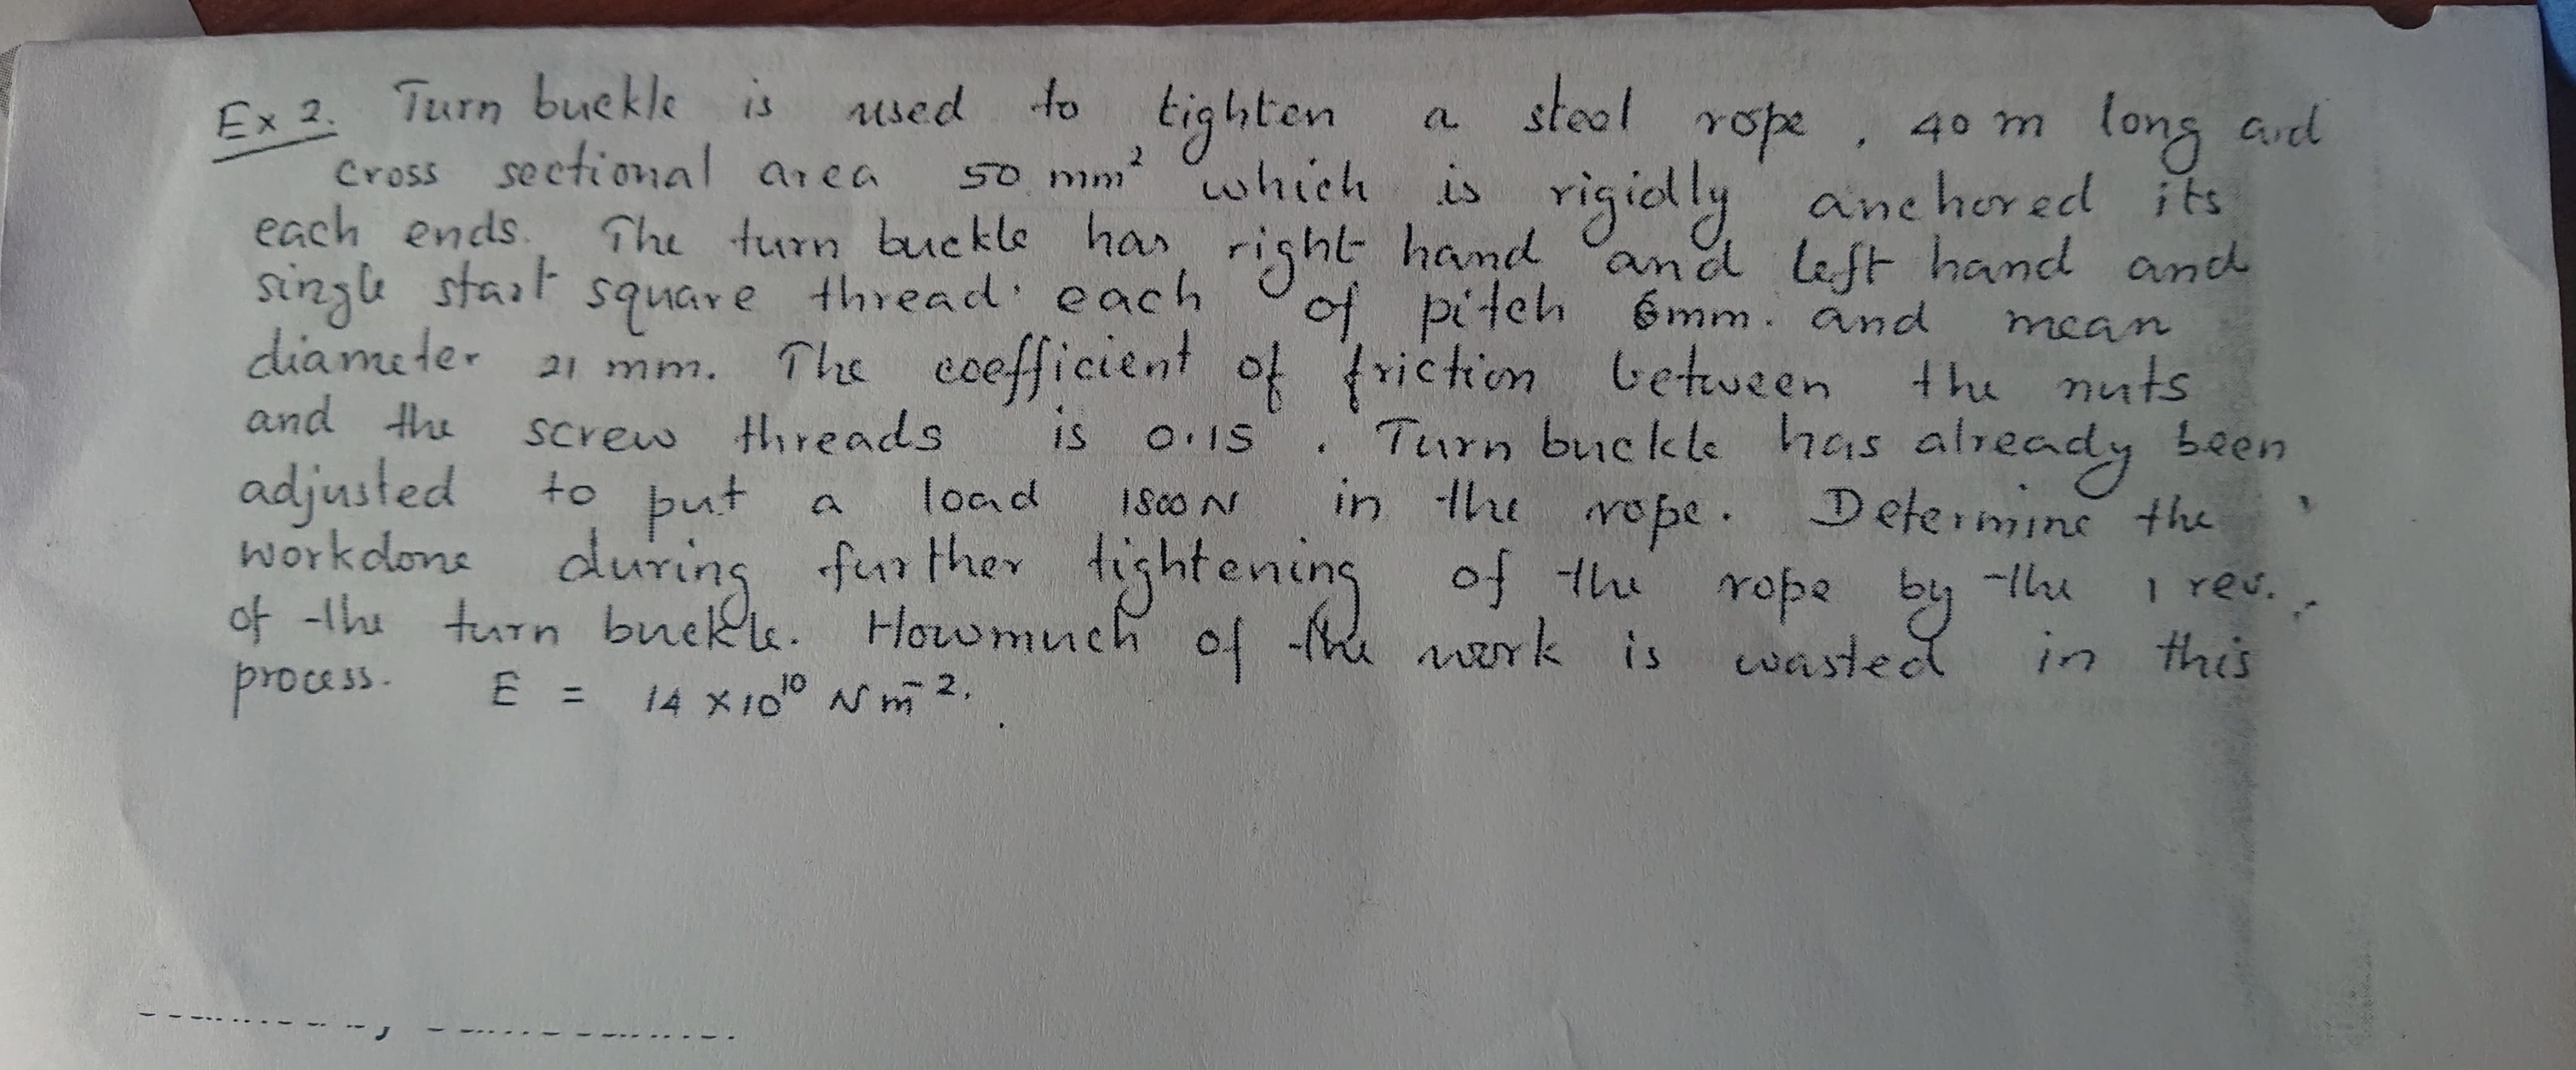 Ex 2. Turn buckle is used to tighten a steel rope, 40 m long and
cross sectional area 50 mm² which is rigidly anchored its
each ends. The turn buckle has right hand and left hand and
single start square thread. each of pitch 6mm. and mean
diameter 21 mm. The coefficient of friction between the nuts
and the screw threads is 0.15. Turn buckle has already been
adjusted to put a load 1800 N in the rope. Determine the
workdone during further tightening of the rope by the 1 rev.
of the turn buckle. Howmuch of the work is wasted in this
process. E = 14 × 10¹⁰ N m⁻².